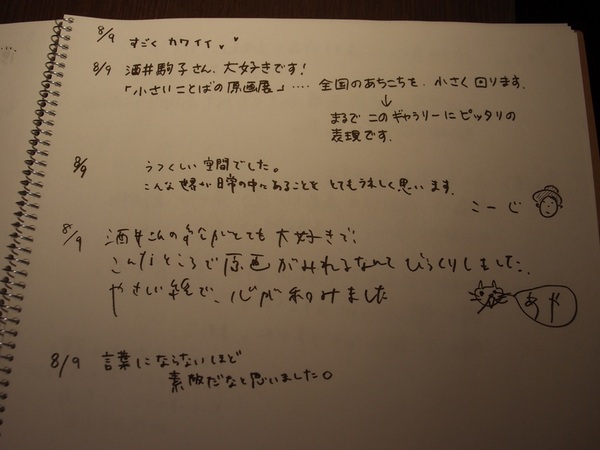 8/9 すごく カワイイ。
8/9 酒井駒子さん、大好きです!
「小さいことばの原画展」‥‥ 全国のあちこちを、小さく回ります。
↓
まるで このギャラリーにピッタリの
表現です。
8/9 うつくしい空間でした。
こんな世界が日常の中にあることを とてもうれしく思います。
こーじ
8/9 酒井さんの絵がとても大好きで、
こんなところで原画がみれるなんて びっくりしました。
やさしい絵で、心が和みました
あや
8/9 言葉にならないほど
素敵だなと思いました。